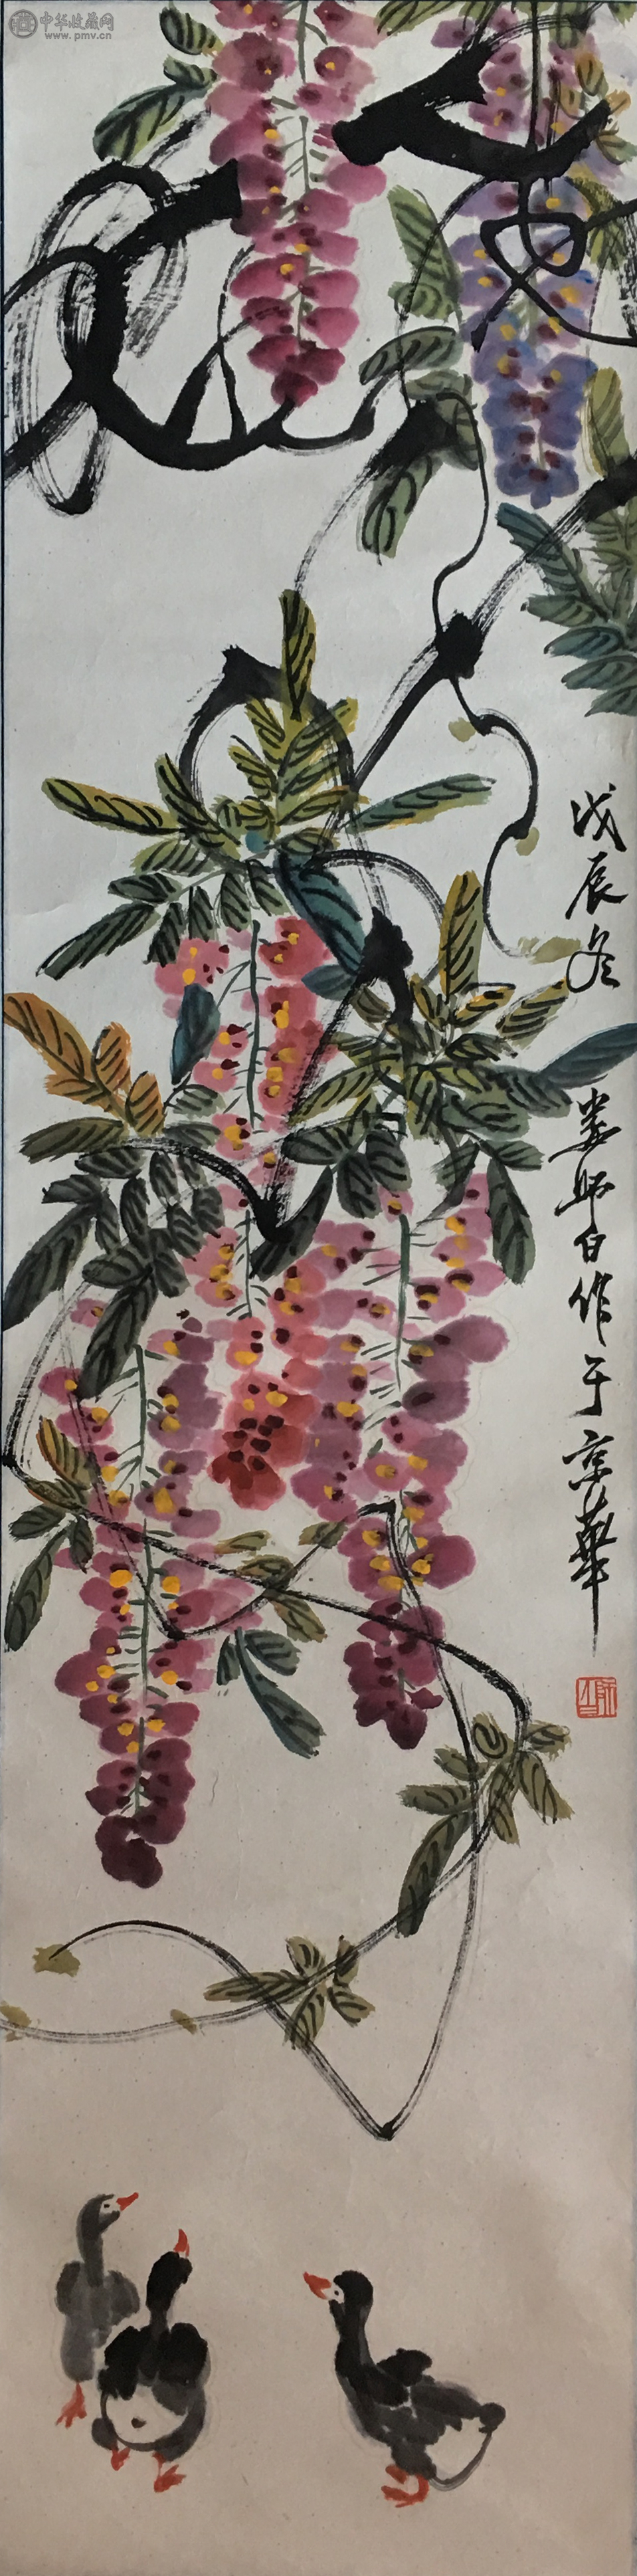 中华收藏网
www.pmv.cn
戊辰冬
娄师白作于京華